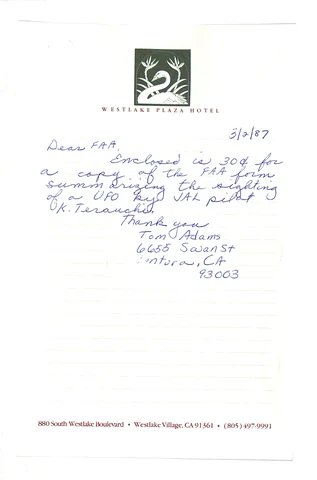 WESTLAKE PLAZA HOTEL
3/2/87
Dear FAA,
Enclosed is 30¢ for
a copy of the FAA form
summarizing the sighting
of a UFO by JAL pilot
K. Terauchi.
Thank you
Tom Adams
6655 Swan St
entura, CA
93003
880 South Westlake Boulevard • Westlake Village, CA 91361 • (805) 497-9991